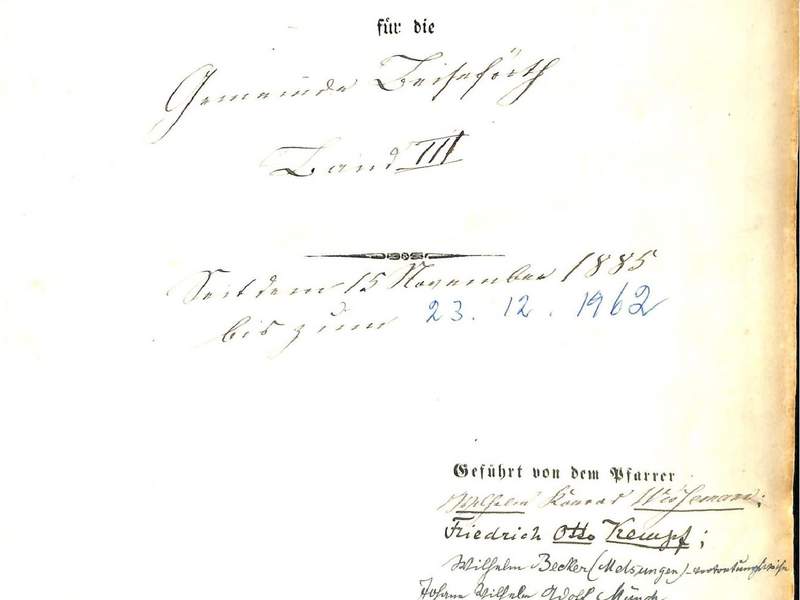 für die
Gemeinde Beiseförth
Band III
Seit dem 15 November 1885
bis zum 23. 12. 1962
Geführt von dem Pfarrer
Wilhelm Konrad
Friedrich Otto Kempf;
Wilhelm Becker (Melsungen) - vertretungsweise
Johann Wilhelm Adolf Münch